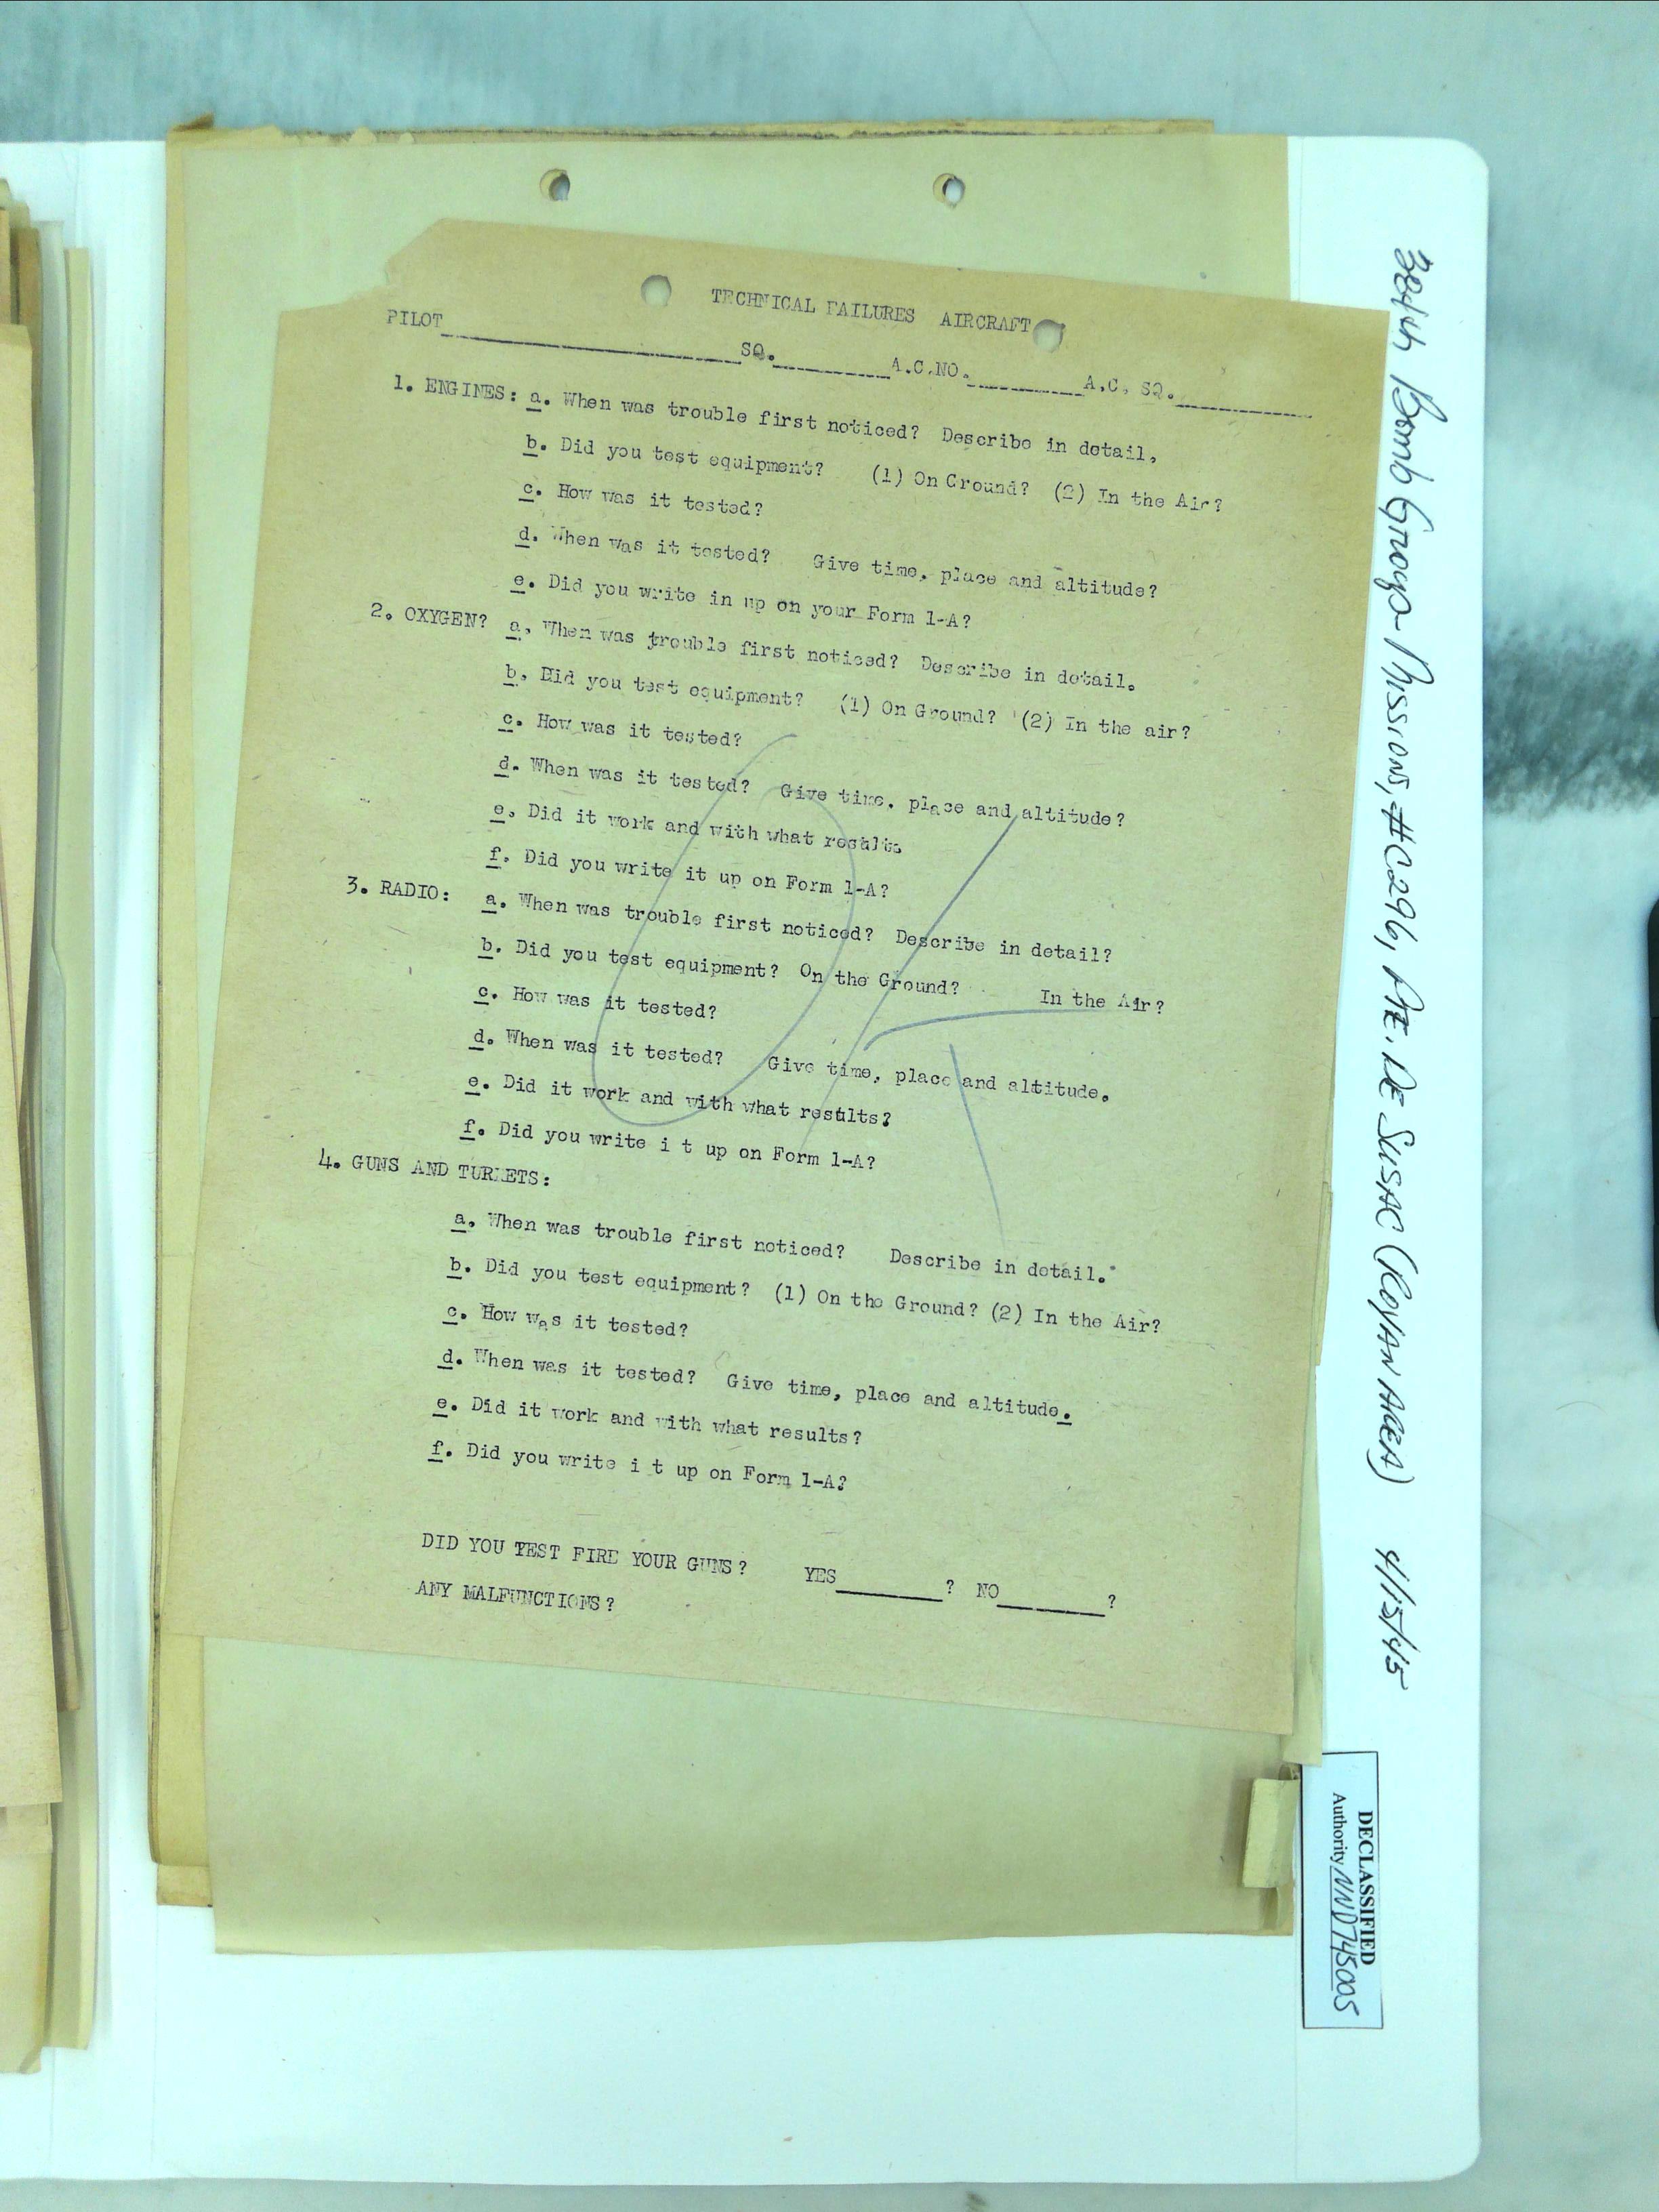 TECHNICAL FAILURES AIRCRAFT
PILOT____ SQ.____ A.C.NO.____ A.C. SQ.____
1. ENGINES: a. When was trouble first noticed? Describe in detail.
b. Did you test equipment? (1) On Ground? (2) In the Air?
c. How was it tested?
d. When was it tested? Give time, place and altitude?
e. Did you write in up on your Form 1-A?
2. OXYGEN? a. When was trouble first noticed? Describe in detail.
b. Did you test equipment? (1) On Ground? (2) In the air?
c. How was it tested?
d. When was it tested? Give time, place and altitude?
e. Did it work and with what results
f. Did you write it up on Form 1-A?
3. RADIO: a. When was trouble first noticed? Describe in detail?
b. Did you test equipment? On the Ground? In the Air?
c. How was it tested?
d. When was it tested? Give time, place and altitude.
e. Did it work and with what results?
f. Did you write i t up on Form 1-A?
4. GUNS AND TURRETS:
a. When was trouble first noticed? Describe in detail.
b. Did you test equipment? (1) On the Ground? (2) In the Air?
c. How was it tested?
d. When was it tested? Give time, place and altitude.
e. Did it work and with what results?
f. Did you write i t up on Form 1-A?
DID YOU TEST FIRE YOUR GUNS? YES____? NO____?
ANY MALFUNCTIONS?
384th Bomb Group Missions, #C296, Pte. De Susac (Royan Area) 4/15/45
DECLASSIFIED
Authority NND745005